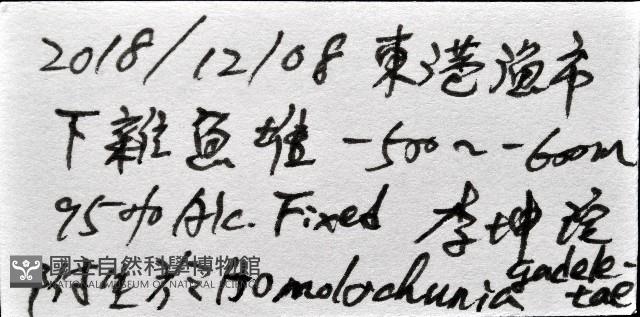 2018/12/08 東港漁市
下雜魚堆 -500~-600m
95% Alc. Fixed 李坤瑄
附生於 Homolochunia gadeletae
國立自然科學博物館
NATIONAL MUSEUM OF NATURAL SCIENCE